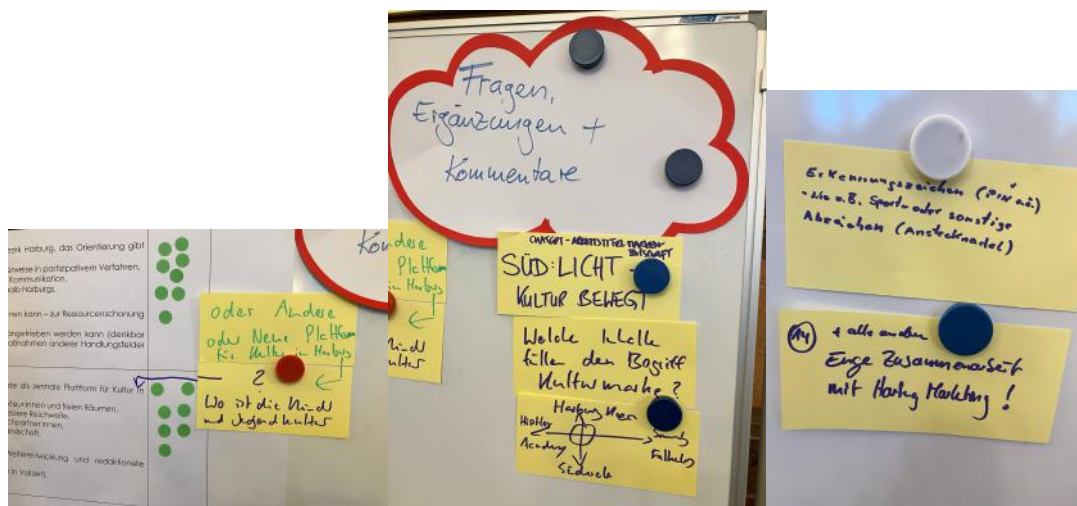 zirk Harburg, das Orientierung gibt
rweise in partizipativem Verfahren,
Kommunikation,
halb Harburgs.
nen kann – zur Ressourcenschonung
angetrieben werden kann (denkbar
aßnahmen anderer Handlungsfelder
de als zentrale Plattform für Kultur in
teur:innen und freien Räumen,
ssere Reichweite,
chpartner:innen,
dschaft.
Weiterentwicklung und redaktionelle
in Vollzeit).
Kom
oder Andere
oder Neue Plattform
für Kultur in Harburg
?
Wo ist die Kinder
und Jugendkultur
Fragen,
Ergänzungen +
Kommentare
ndere
Plattform
in Harburg
Kinder
ultur
CHATGPT-ARBEITSTITEL MARKEN-
BOTSCHAFT
SÜD:LICHT –
KULTUR BEWEGT
Welche Inhalte
füllen den Begriff
Kulturmarke?
Harburg
HipHop
Academy
Südwerk
Erkennungszeichen (PIN o.ä.)
- wie z.B. Sport- oder sonstige
Abzeichen (Anstecknadel)
A4 + alle anderen
Enge Zusammenarbeit
mit Harburg Marketing!